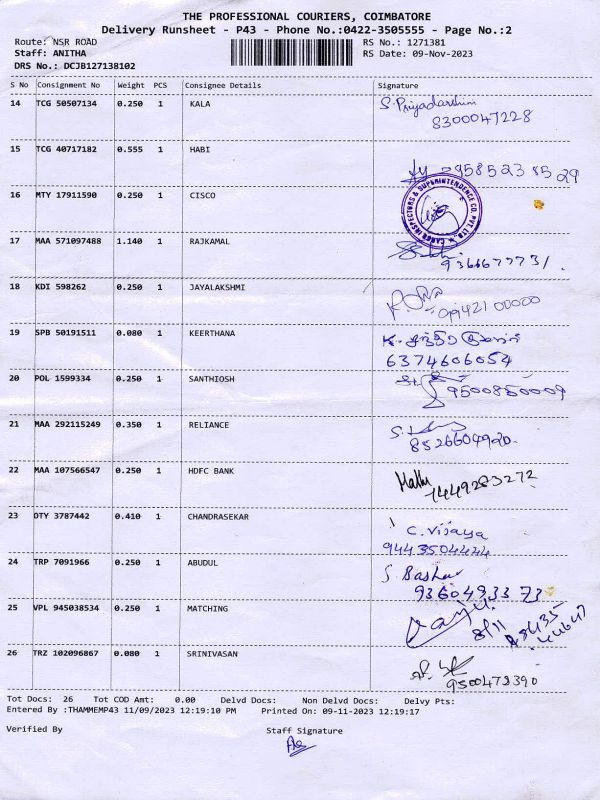 THE PROFESSIONAL COURIERS, COIMBATORE
Delivery Runsheet - P43 - Phone No.:0422-3505555 - Page No.:2
Route: NSR ROAD RS No.: 1271381
Staff: ANITHA RS Date: 09-Nov-2023
DRS No.: DCJB127138102
S No Consignment No Weight PCS Consignee Details Signature
14 TCG 50507134 0.250 1 KALA S. Priyadarshini
8300047228
15 TCG 40717182 0.555 1 HABI
9585238529
16 MTY 17911590 0.250 1 CISCO
CARGO INSPECTORS & SUPERINTENDENCE CO. PVT. LTD.
17 MAA 571097488 1.140 1 RAJKAMAL
18 KDI 598262 0.250 1 JAYALAKSHMI
09942100000
19 SPB 50191511 0.080 1 KEERTHANA
6374606054
20 POL 1599334 0.250 1 SANTHIOSH
9500850009
21 MAA 292115249 0.350 1 RELIANCE
8526604920
22 MAA 107566547 0.250 1 HDFC BANK
7449283272
23 DTY 3787442 0.410 1 CHANDRASEKAR
C. Vijaya
9443504444
24 TRP 7091966 0.250 1 ABUDUL
S Bashar
9360493373
25 VPL 945038534 0.250 1 MATCHING
8/11
26 TRZ 102096867 0.080 1 SRINIVASAN
9500473390
Tot Docs: 26 Tot COD Amt: 0.00 Delvd Docs: Non Delvd Docs: Delvy Pts:
Entered By :THAMMEMP43 11/09/2023 12:19:10 PM Printed On: 09-11-2023 12:19:17
Verified By Staff Signature